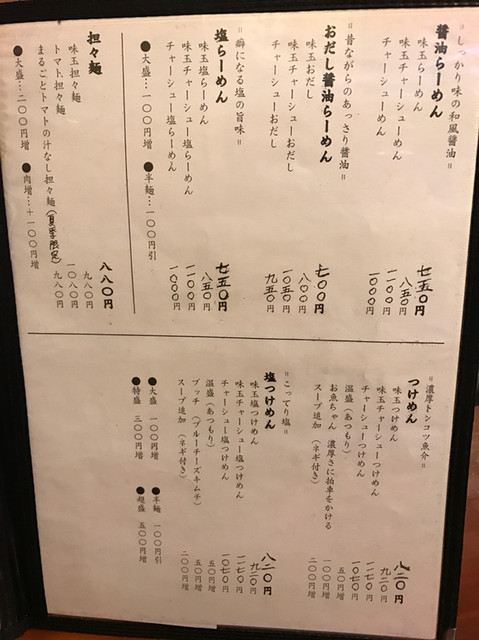 "しっかり味の和風醤油"
醤油らーめん 七五〇円
味玉らーめん 八五〇円
味玉チャーシューめん 一一〇〇円
チャーシューめん 一〇〇〇円
"昔ながらのあっさり醤油"
おだし醤油らーめん 七〇〇円
味玉おだし 八〇〇円
味玉チャーシューおだし 一〇五〇円
チャーシューおだし 九五〇円
"癖になる塩の旨味"
塩らーめん 七五〇円
味玉塩らーめん 八五〇円
味玉チャーシュー塩らーめん 一一〇〇円
チャーシュー塩らーめん 一〇〇〇円
●大盛…一〇〇円増 ●半麺…一〇〇円引
担々麺 八八〇円
味玉担々麺 九八〇円
トマト担々麺 一〇八〇円
まるごとトマトの汁なし担々麺(夏季限定) 九八〇円
●大盛…二〇〇円増 ●肉増…+一〇〇円増
"濃厚トンコツ魚介"
つけめん 八二〇円
味玉つけめん 九二〇円
味玉チャーシューつけめん 一一七〇円
チャーシューつけめん 一〇七〇円
温盛(あつもり) 五〇円
お魚ちゃん 濃厚さに拍車をかける 一〇〇円
スープ追加(ネギ付き) 二〇〇円
"こってり塩"
塩つけめん 八二〇円
味玉塩つけめん 九二〇円
味玉チャーシュー塩つけめん 一一七〇円
チャーシュー塩つけめん 一〇七〇円
温盛(あつもり) 五〇円
ブッチ(ブルーチーズキムチ) 五〇円増
スープ追加(ネギ付き) 二〇〇円増
●大盛 一〇〇円増 ●半麺 一〇〇円引
●特盛 三〇〇円増 ●超盛 五〇〇円増